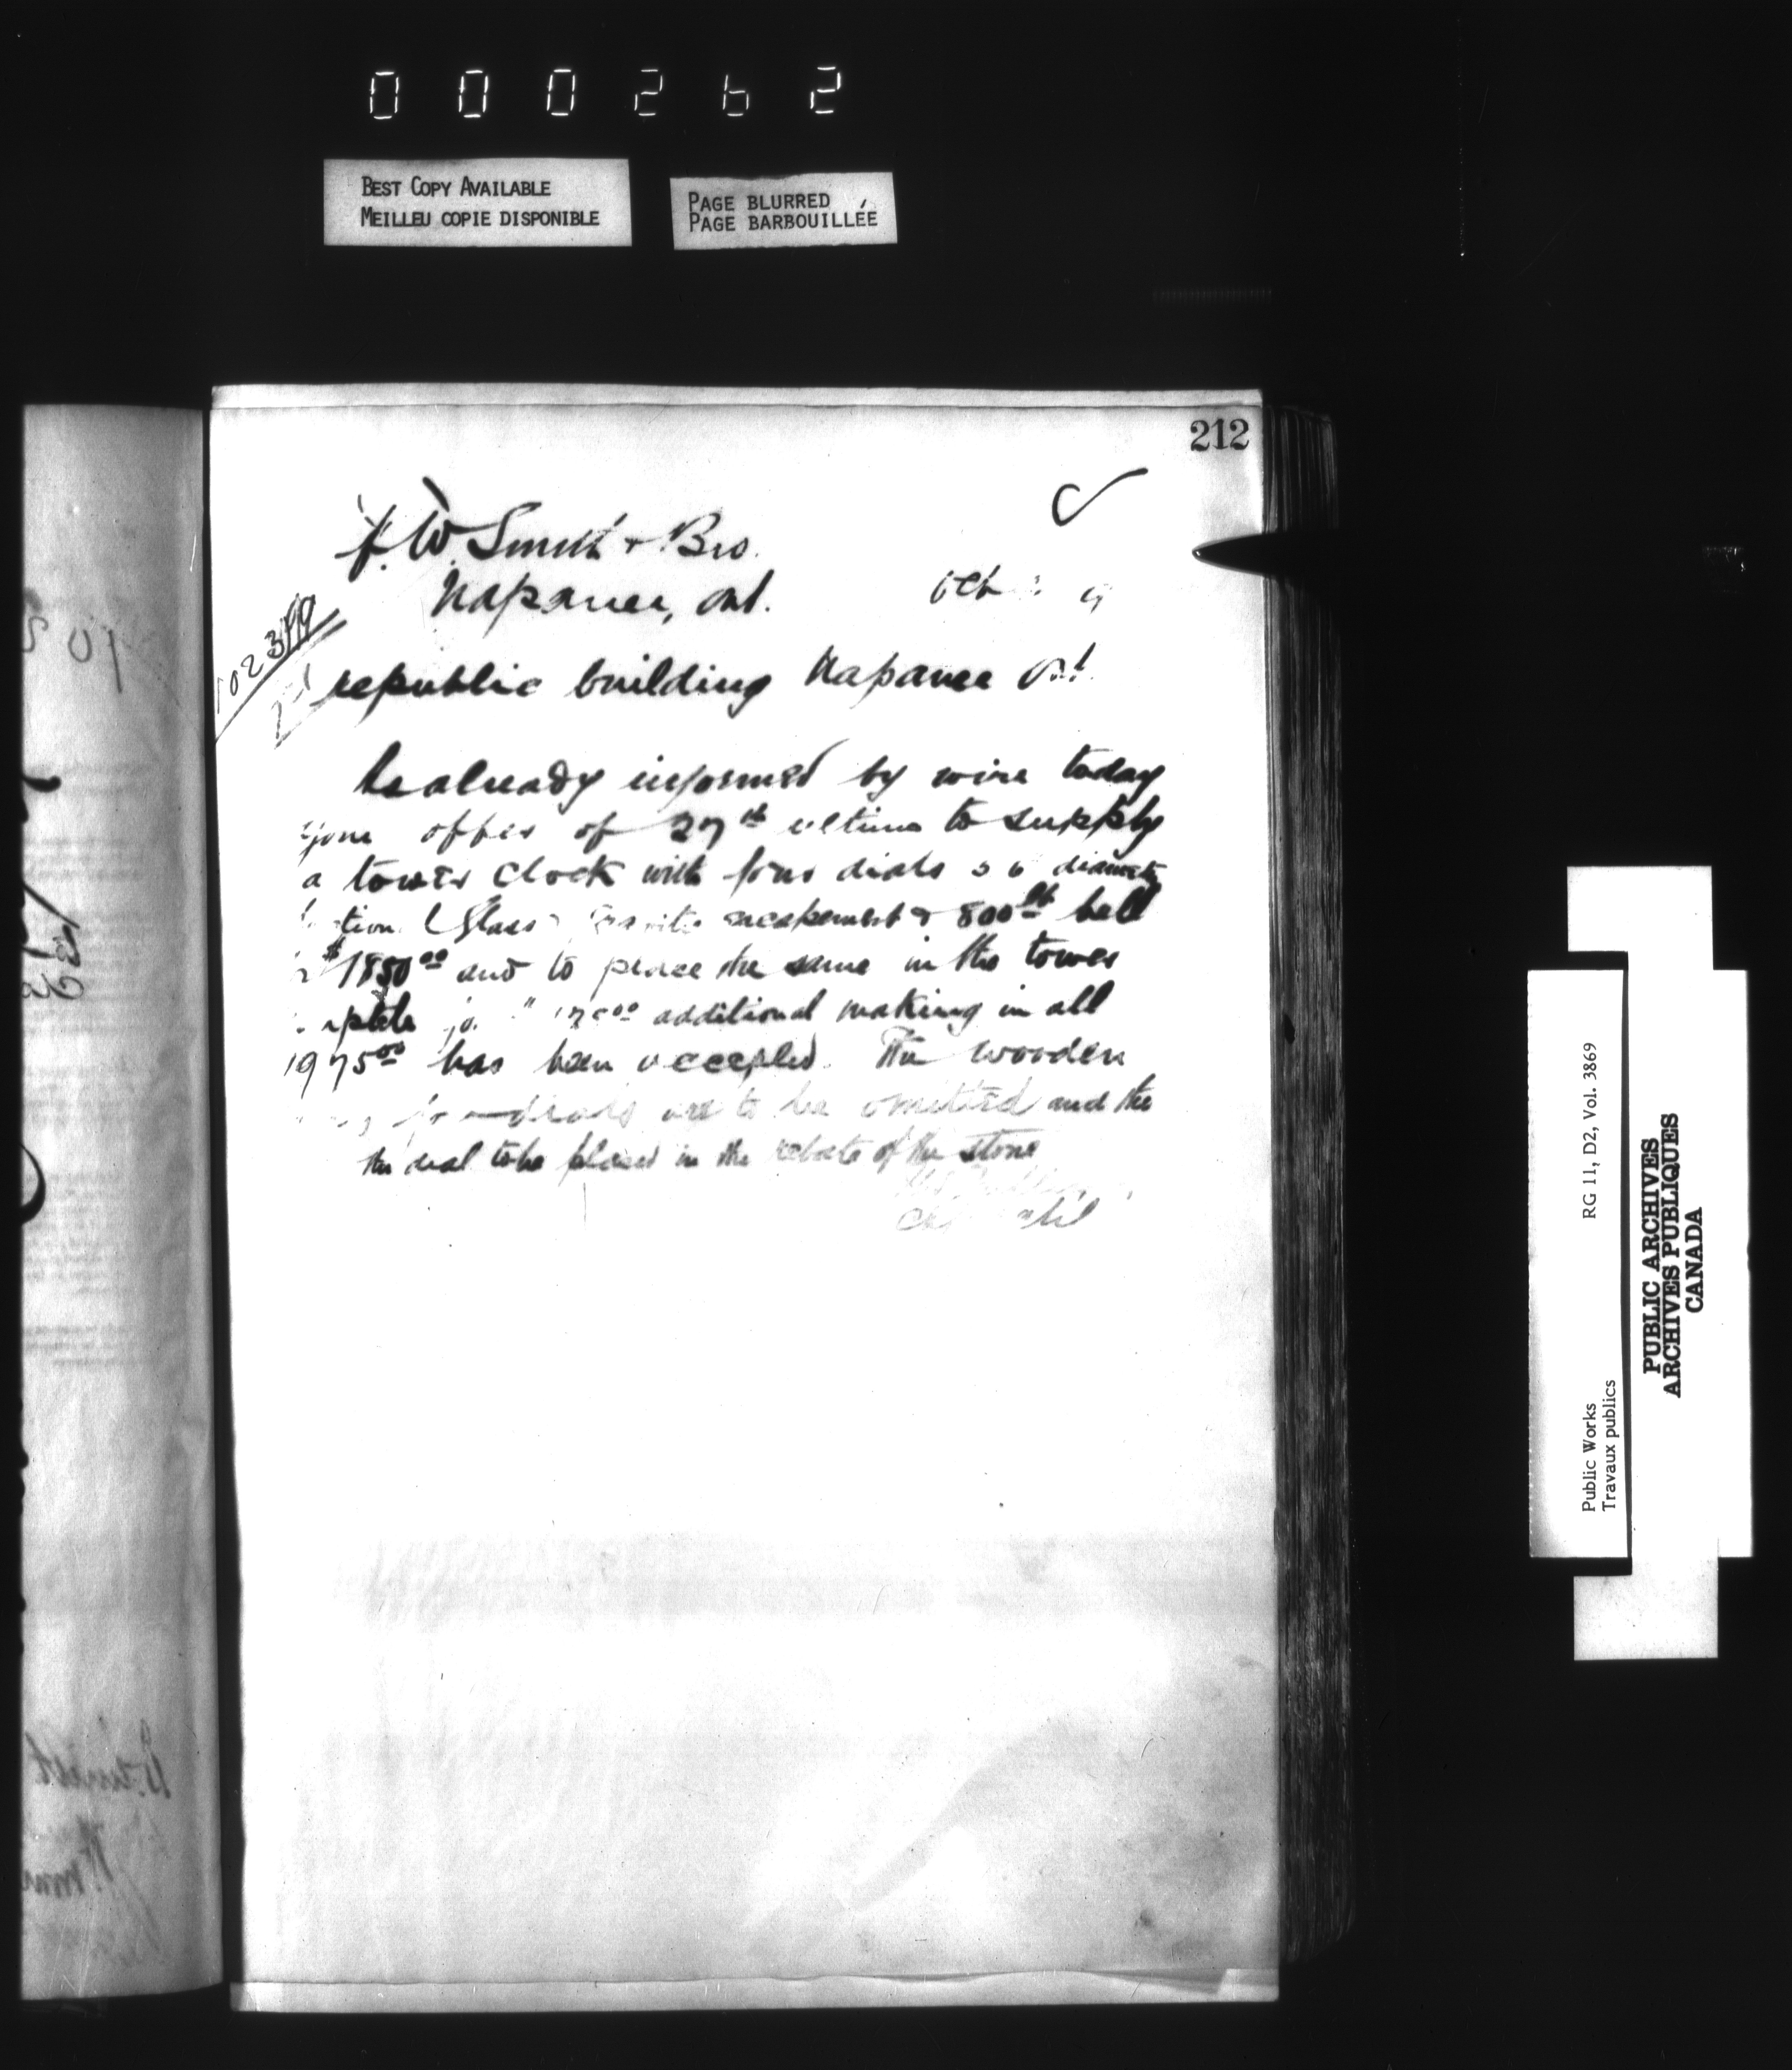 000262
BEST COPY AVAILABLE
MEILLEU COPIE DISPONIBLE
PAGE BLURRED
PAGE BARBOUILLÉE
212
F. W. Smith & Bro.
Napanee, Ont.
102399
re public building Napanee Ont
As already informed by wire today
your offer of 27th ultimo to supply
a tower clock with four dials 5 6 diameter
(Glass) escapement & 800 lb bell
$1850.00 and to place the same in the tower
additional making in all
1975.00 has been accepted. The wooden
dials are to be omitted and the
the dial to be placed in the rebate of the stone
Public Works
Travaux publics
RG 11, D2, Vol. 3869
PUBLIC ARCHIVES
ARCHIVES PUBLIQUES
CANADA